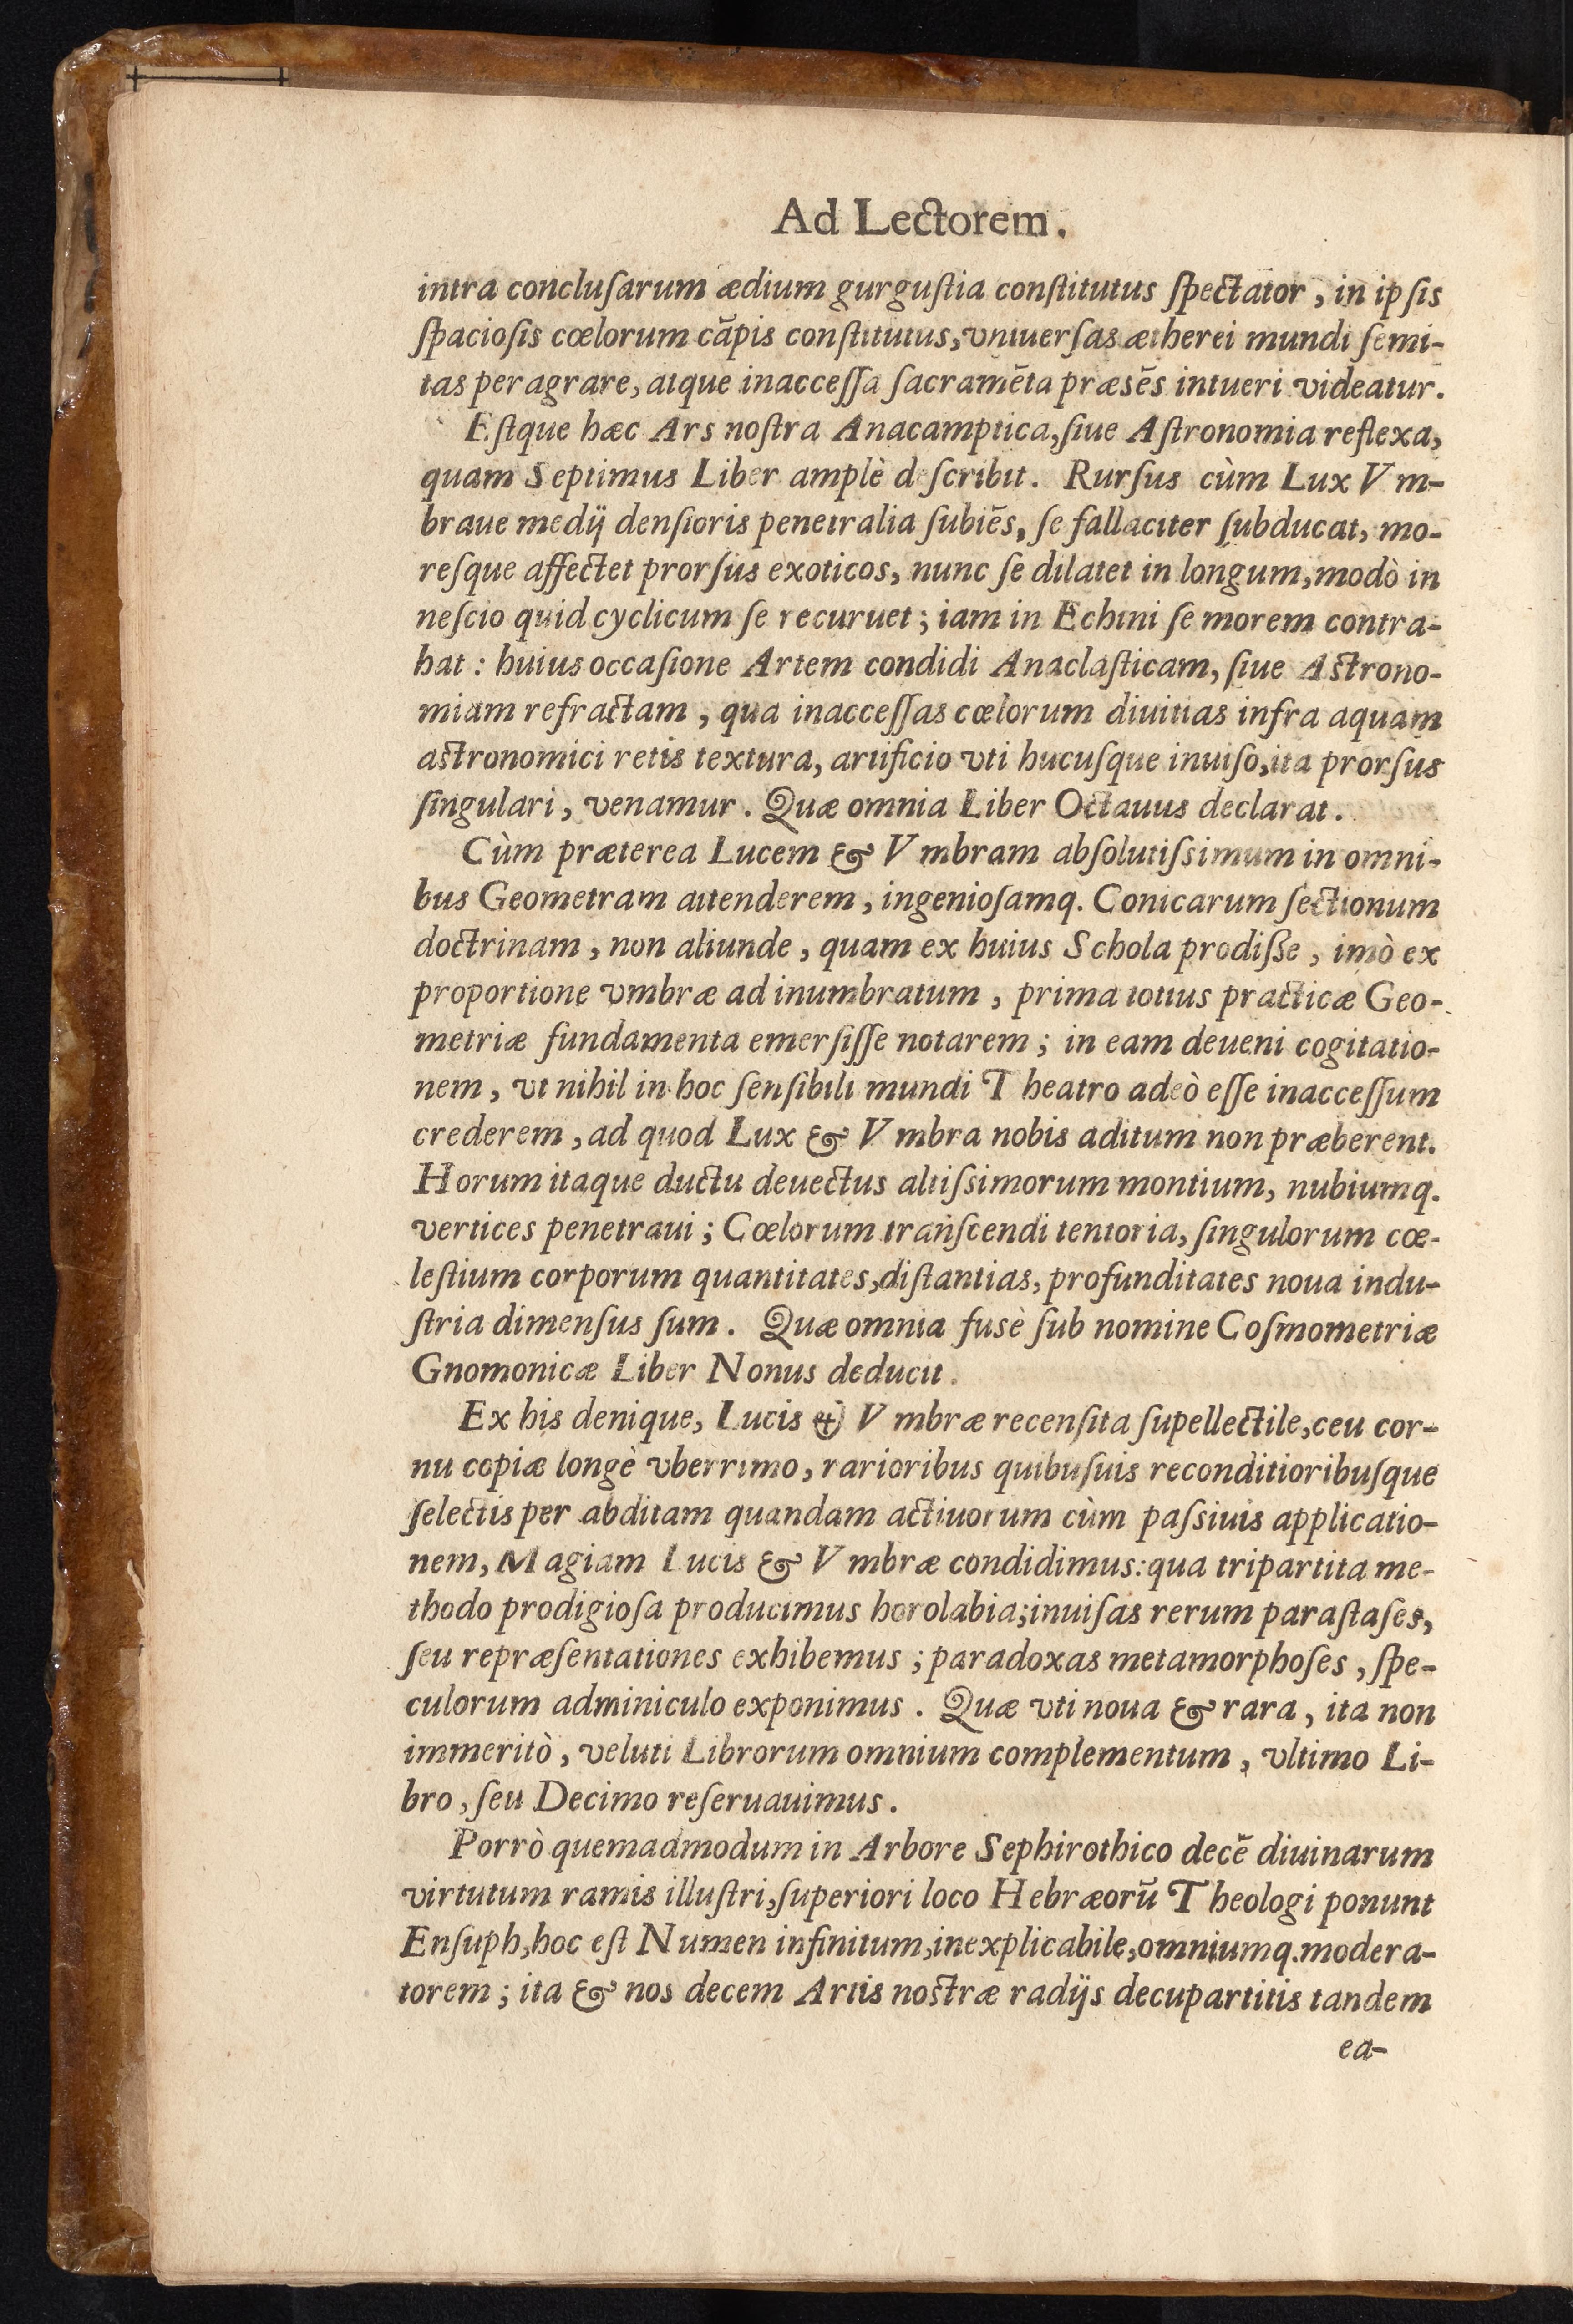 Ad Lectorem.
intra concluſarum ædium gurguſtia conſtitutus ſpectator, in ipſis
ſpacioſis cœlorum cāpis conſtitutus, vniuerſas ætherei mundi ſemi-
tas peragrare, atque inacceſſa ſacramēta præsēs intueri videatur.
Eſtque hæc Ars noſtra Anacamptica, ſiue Aſtronomia reflexa,
quam Septimus Liber amplè deſcribit. Rurſus cùm Lux Vm-
braue medij denſioris penetralia ſubiēs, ſe fallaciter ſubducat, mo-
reſque affectet prorſus exoticos, nunc ſe dilatet in longum, modò in
neſcio quid cyclicum ſe recuruet; iam in Echini ſe morem contra-
hat: huius occaſione Artem condidi Anaclaſticam, ſiue Aſtrono-
miam refractam, qua inacceſſas cœlorum diuitias infra aquam
aſtronomici retis textura, artificio vti hucuſque inuiſo, ita prorſus
ſingulari, venamur. Quæ omnia Liber Octauus declarat.
Cùm præterea Lucem & Vmbram abſolutiſsimum in omni-
bus Geometram attenderem, ingenioſamq. Conicarum ſectionum
doctrinam, non aliunde, quam ex huius Schola prodiſse, imò ex
proportione vmbræ ad inumbratum, prima totius practicæ Geo-
metriæ fundamenta emerſiſſe notarem; in eam deueni cogitatio-
nem, vt nihil in hoc ſenſibili mundi Theatro adeò eſſe inacceſſum
crederem, ad quod Lux & Vmbra nobis aditum non præberent.
Horum itaque ductu deuectus altiſsimorum montium, nubiumq.
vertices penetraui; Cœlorum tranſcendi tentoria, ſingulorum cœ-
leſtium corporum quantitates, diſtantias, profunditates noua indu-
ſtria dimenſus ſum. Quæ omnia fusè ſub nomine Coſmometriæ
Gnomonicæ Liber Nonus deducit.
Ex his denique, Lucis & Vmbræ recenſita ſupellectile, ceu cor-
nu copiæ longè vberrimo, rarioribus quibuſuis reconditioribuſque
ſelectis per abditam quandam actiuorum cùm paſsiuis applicatio-
nem, Magiam Lucis & Vmbræ condidimus: qua tripartita me-
thodo prodigioſa producimus horolabia; inuiſas rerum paraſtaſes,
ſeu repræſentationes exhibemus; paradoxas metamorphoſes, ſpe-
culorum adminiculo exponimus. Quæ vti noua & rara, ita non
immeritò, veluti Librorum omnium complementum, vltimo Li-
bro, ſeu Decimo reſeruauimus.
Porrò quemadmodum in Arbore Sephirothico decē diuinarum
virtutum ramis illuſtri, ſuperiori loco Hebræorū Theologi ponunt
Enſuph, hoc eſt Numen infinitum, inexplicabile, omniumq. modera-
torem; ita & nos decem Artis noſtræ radijs decupartitis tandem
ea-